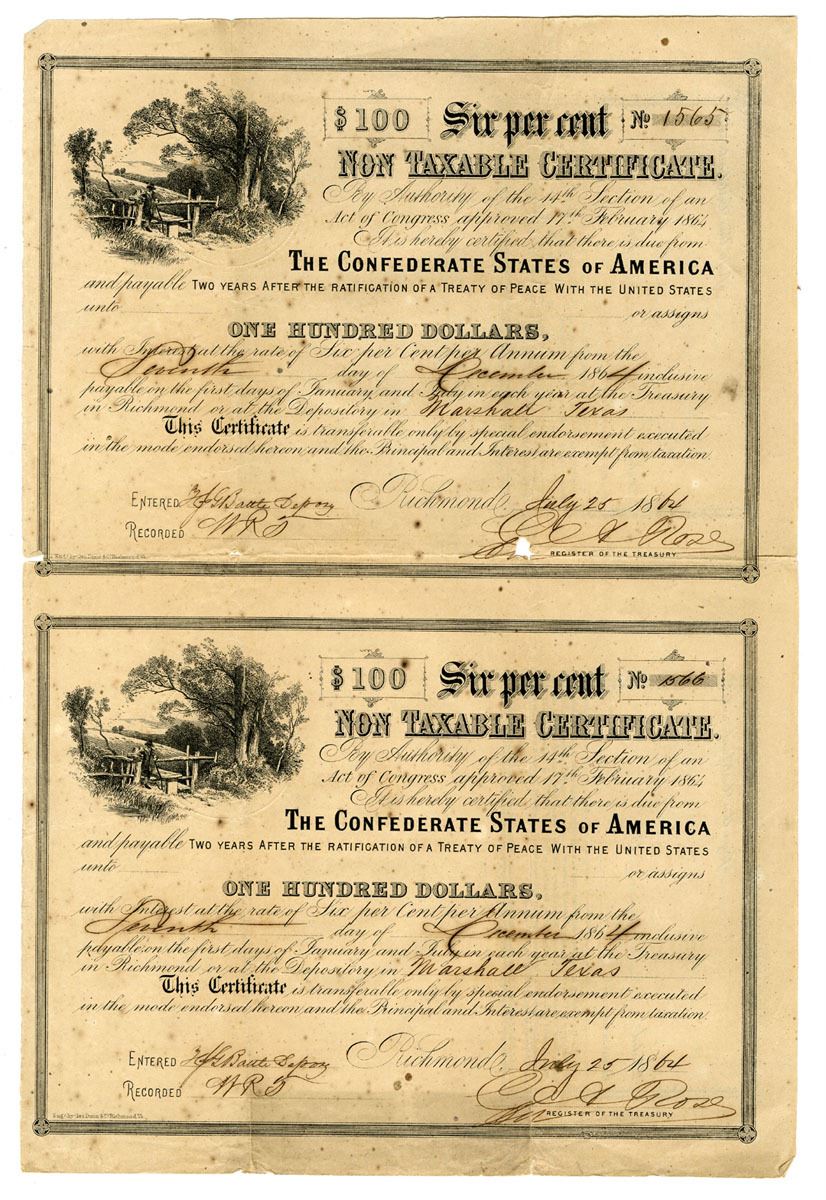 $100 Six per cent No 1565
NON TAXABLE CERTIFICATE.
By Authority of the 14th Section of an
Act of Congress approved 17th February 1864
It is hereby certified, that there is due from
THE CONFEDERATE STATES OF AMERICA
and payable TWO YEARS AFTER THE RATIFICATION OF A TREATY OF PEACE WITH THE UNITED STATES
unto or assigns
ONE HUNDRED DOLLARS,
with Interest at the rate of Six per Cent per Annum from the
Seventh day of December 1864 inclusive
payable on the first days of January and July in each year at the Treasury
in Richmond or at the Depository in Marshall Texas
This Certificate is transferable only by special endorsement executed
in the mode endorsed hereon and the Principal and Interest are exempt from taxation.
ENTERED Richmond, July 25 1864
RECORDED
REGISTER OF THE TREASURY
Eng. by Geo. Dunn & Co. Richmond Va.
$100 Six per cent No 1566
NON TAXABLE CERTIFICATE.
By Authority of the 14th Section of an
Act of Congress approved 17th February 1864
It is hereby certified, that there is due from
THE CONFEDERATE STATES OF AMERICA
and payable TWO YEARS AFTER THE RATIFICATION OF A TREATY OF PEACE WITH THE UNITED STATES
unto or assigns
ONE HUNDRED DOLLARS,
with Interest at the rate of Six per Cent per Annum from the
Seventh day of December 1864 inclusive
payable on the first days of January and July in each year at the Treasury
in Richmond or at the Depository in Marshall Texas
This Certificate is transferable only by special endorsement executed
in the mode endorsed hereon and the Principal and Interest are exempt from taxation.
ENTERED Richmond, July 25 1864
RECORDED
Rose
REGISTER OF THE TREASURY
Eng. by Geo. Dunn & Co. Richmond Va.